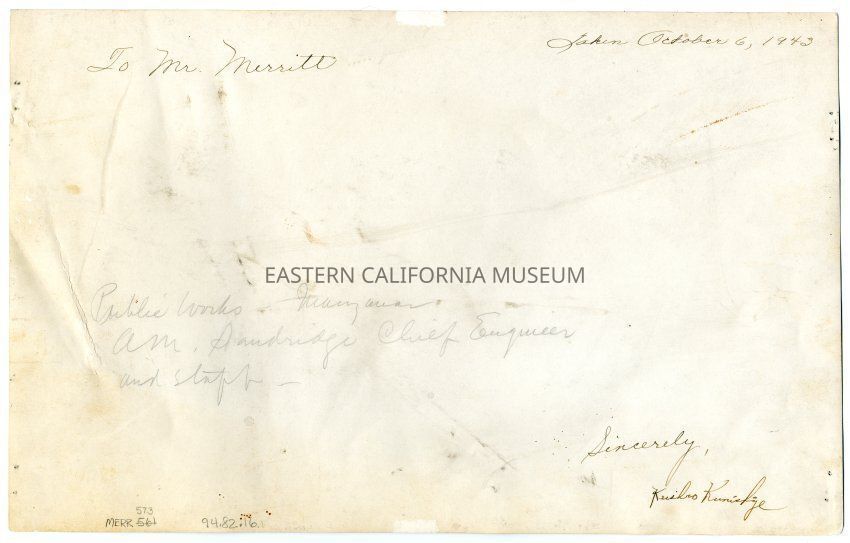 To Mr. Merritt
Taken October 6, 1943
EASTERN CALIFORNIA MUSEUM
Public Works - Manzanar
A.M. Sandridge Chief Engineer
and staff -
Sincerely,
573
MERR 561
94.82.16.